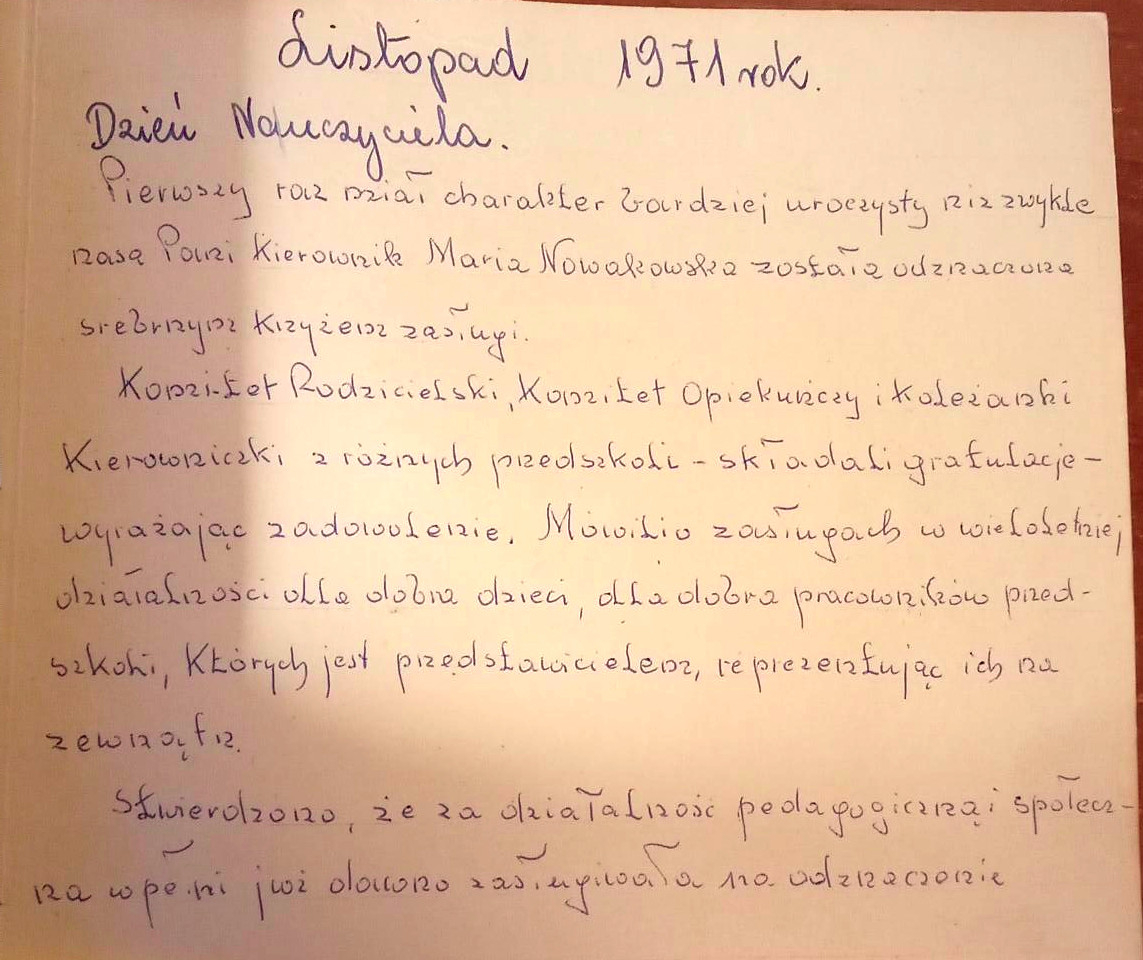 Listopad 1971 rok.
Dzień Nauczyciela.
Pierwszy raz miał charakter bardziej uroczysty niż zwykle
nasa Pani Kierownik Maria Nowakowska została odznaczona
srebrnym Krzyżem zasługi.
Komitet Rodzicielski, Komitet Opiekuńczy i Koleżanki
Kierowniczki z różnych przedszkoli - składali gratulacje -
wyrażając zadowolenie. Mówili o zasługach w wieloletniej
działalności dla dobra dzieci, dla dobra pracowników przed-
szkoli, Których jest przedstawicielem, reprezentując ich na
zewnątrz.
Stwierdzono, że za działalność pedagogiczną i społecz-
ną w pełni już dawno zasługiwała na odznaczenie